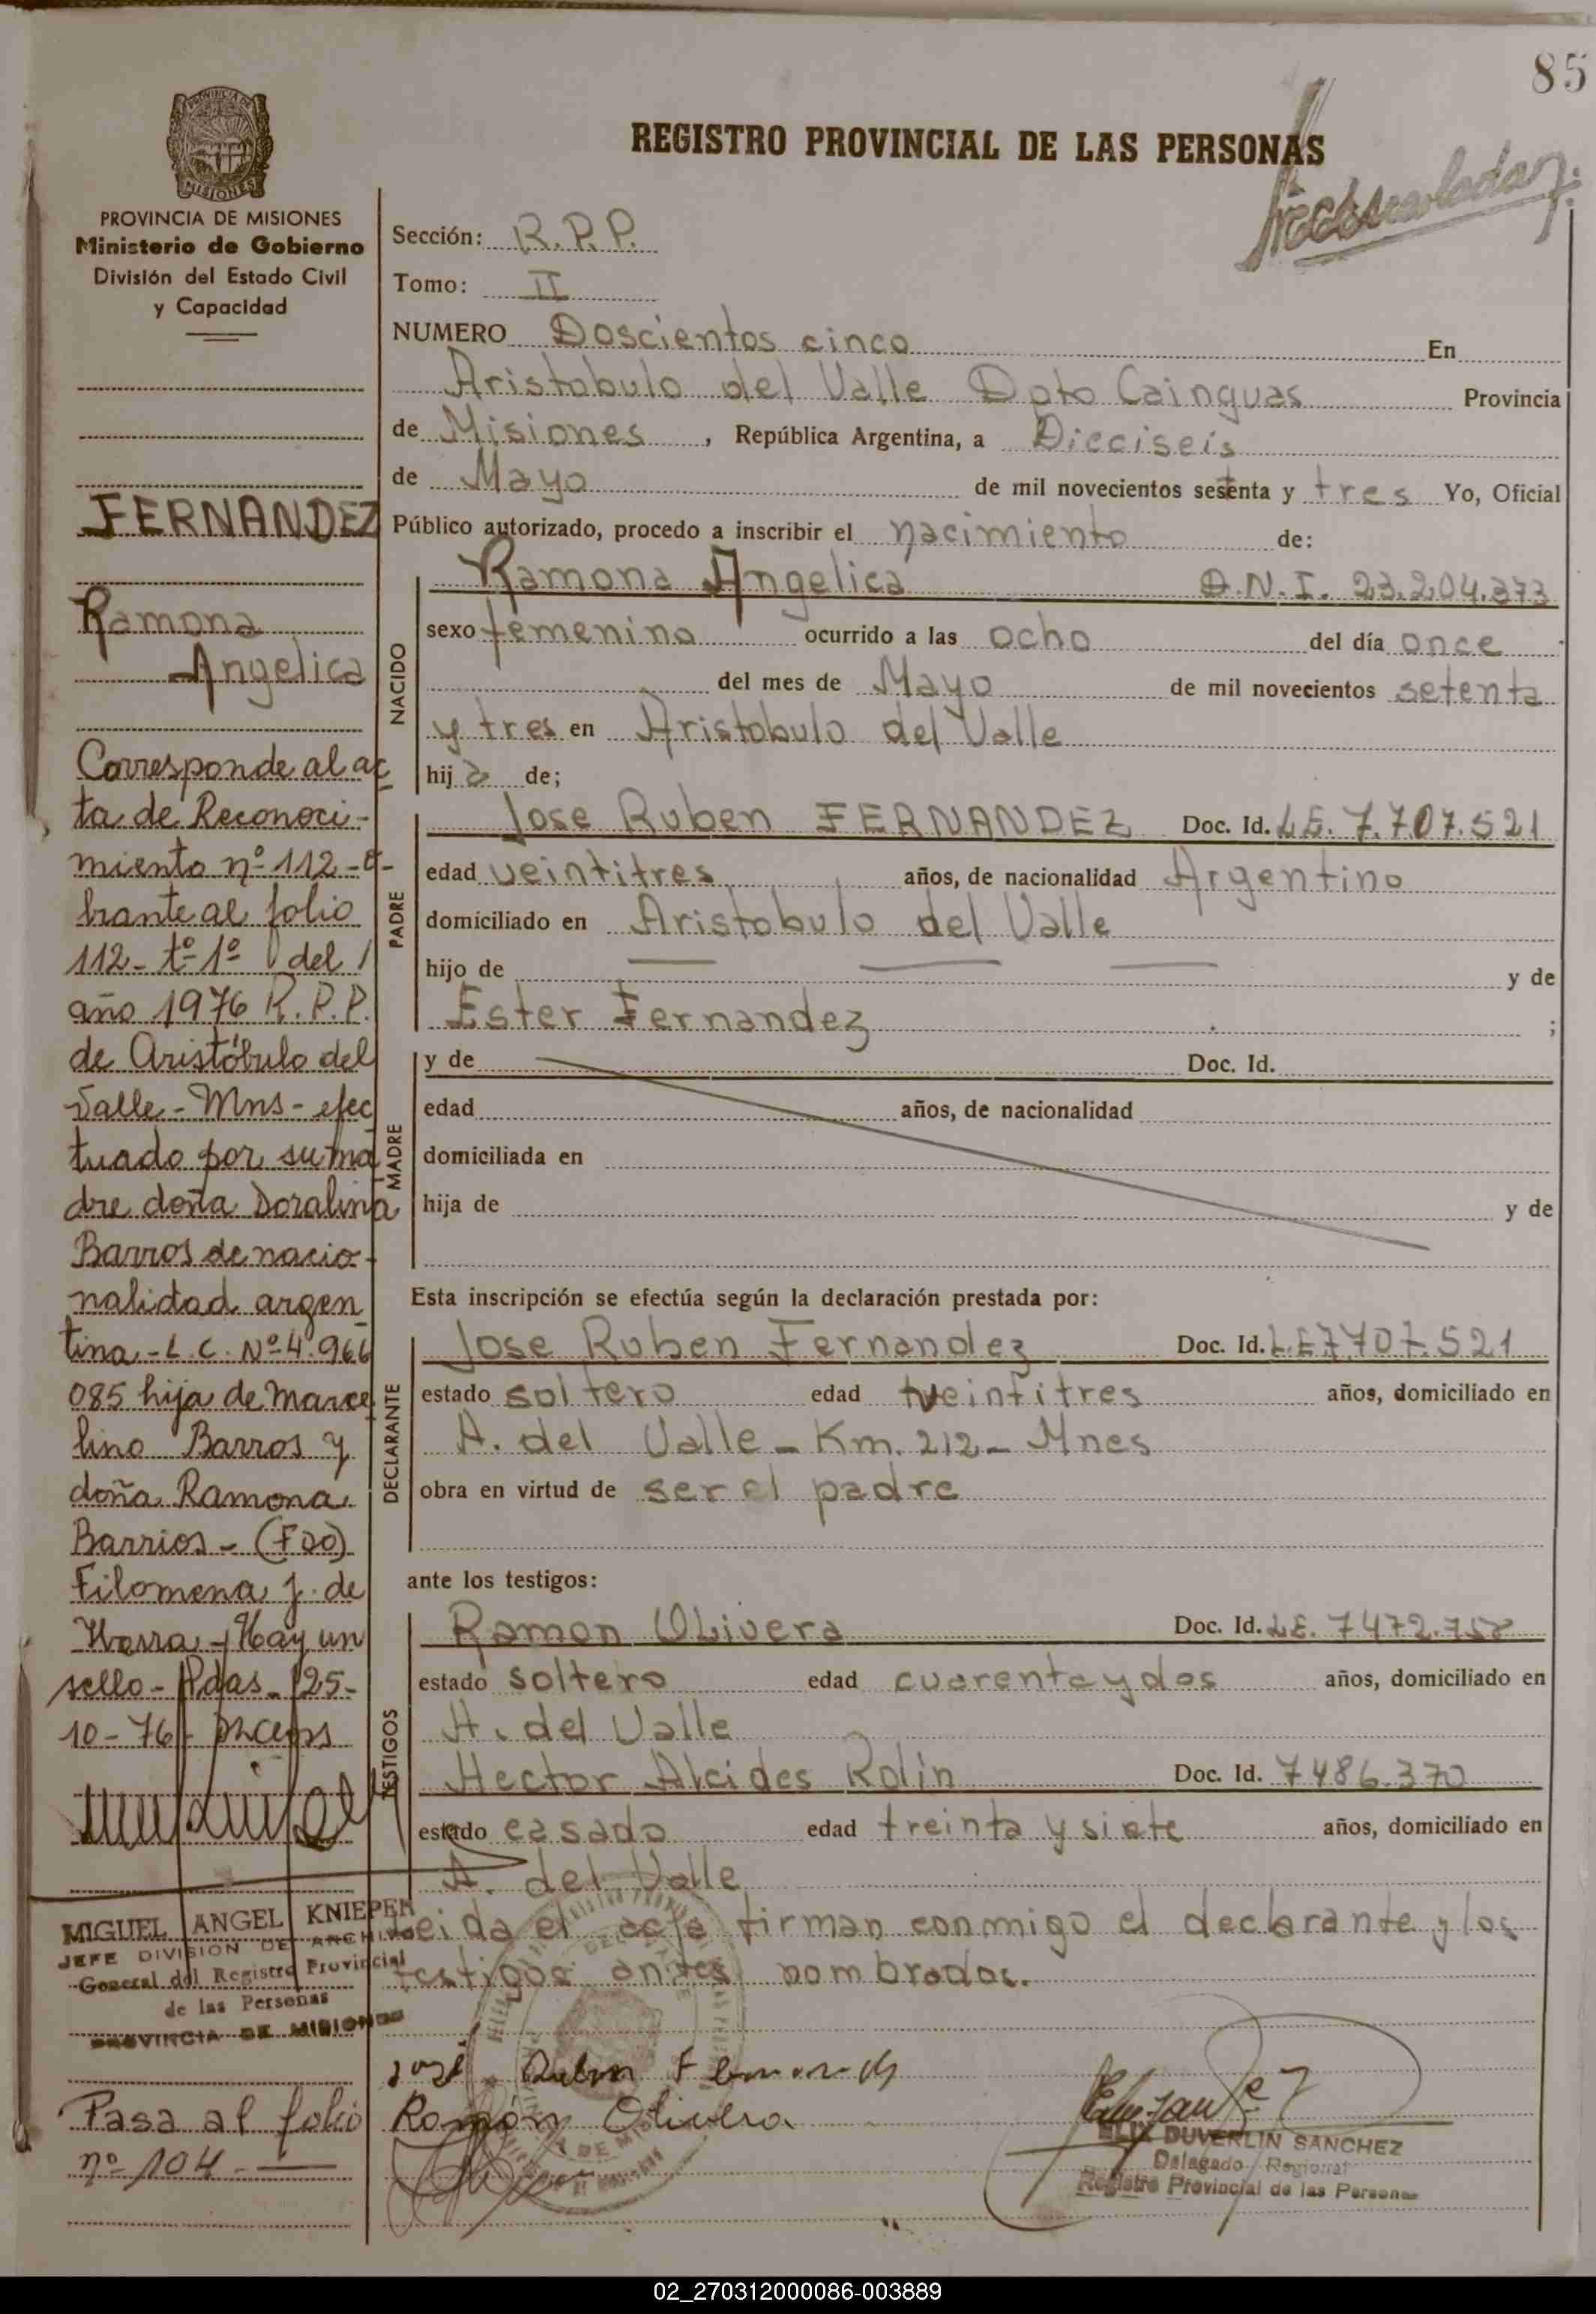 85
REGISTRO PROVINCIAL DE LAS PERSONAS
PROVINCIA DE
MISIONES
PROVINCIA DE MISIONES
Ministerio de Gobierno
División del Estado Civil
y Capacidad
FERNANDEZ
Ramona
Angelica
Corresponde al ac
ta de Reconoci-
miento nº 112-o-
brante al folio
112- tº 1º del
año 1976 R.P.P.
de Aristóbulo del
Valle - Mns - efec
tuado por su ma
dre doña Doralina
Barros de nacio-
nalidad argen
tina - L.C. Nº 4.966
085 hija de Marce
lino Barros y
doña Ramona
Barrios - (Fdo)
Filomena J. de
Hay un
sello - Pdas. 25-
10-76-
MIGUEL ANGEL KNIEPER
JEFE DIVISION DE ARCHIVO
General del Registro Provincial
de las Personas
PROVINCIA DE MISIONES
Pasa al folio
nº 104.-
Sección: R.P.P.
Tomo: II
NUMERO Doscientos cinco En
Aristobulo del Valle Dpto Cainguas Provincia
de Misiones, República Argentina, a Dieciseis
de Mayo de mil novecientos setenta y tres Yo, Oficial
Público autorizado, procedo a inscribir el nacimiento de:
NACIDO
Ramona Angelica D.N.I. 23.204.373
sexo femenino ocurrido a las ocho del día once
del mes de Mayo de mil novecientos setenta
y tres en Aristobulo del Valle
hija de;
PADRE
Jose Ruben FERNANDEZ Doc. Id. L.E. 7.707.521
edad veintitres años, de nacionalidad Argentino
domiciliado en Aristobulo del Valle
hijo de y de
Ester Fernandez ;
MADRE
y de Doc. Id.
edad años, de nacionalidad
domiciliada en
hija de y de
Esta inscripción se efectúa según la declaración prestada por:
DECLARANTE
Jose Ruben Fernandez Doc. Id. L.E 7.707.521
estado soltero edad veintitres años, domiciliado en
A. del Valle - Km. 212 - Mnes
obra en virtud de ser el padre
ante los testigos:
TESTIGOS
Ramon Olivera Doc. Id. L.E. 7472.758
estado soltero edad cuarenta y dos años, domiciliado en
A. del Valle
Hector Alcides Rolin Doc. Id. 7486.370
estado casado edad treinta y siete años, domiciliado en
A. del Valle
Leida el acta firman conmigo el declarante y los
testigos antes nombrados.
José Ruben Fernandez
Ramón Olivera
FELIX DUVERLIN SANCHEZ
Delegado Regional
Registro Provincial de las Personas
02_270312000086-003889